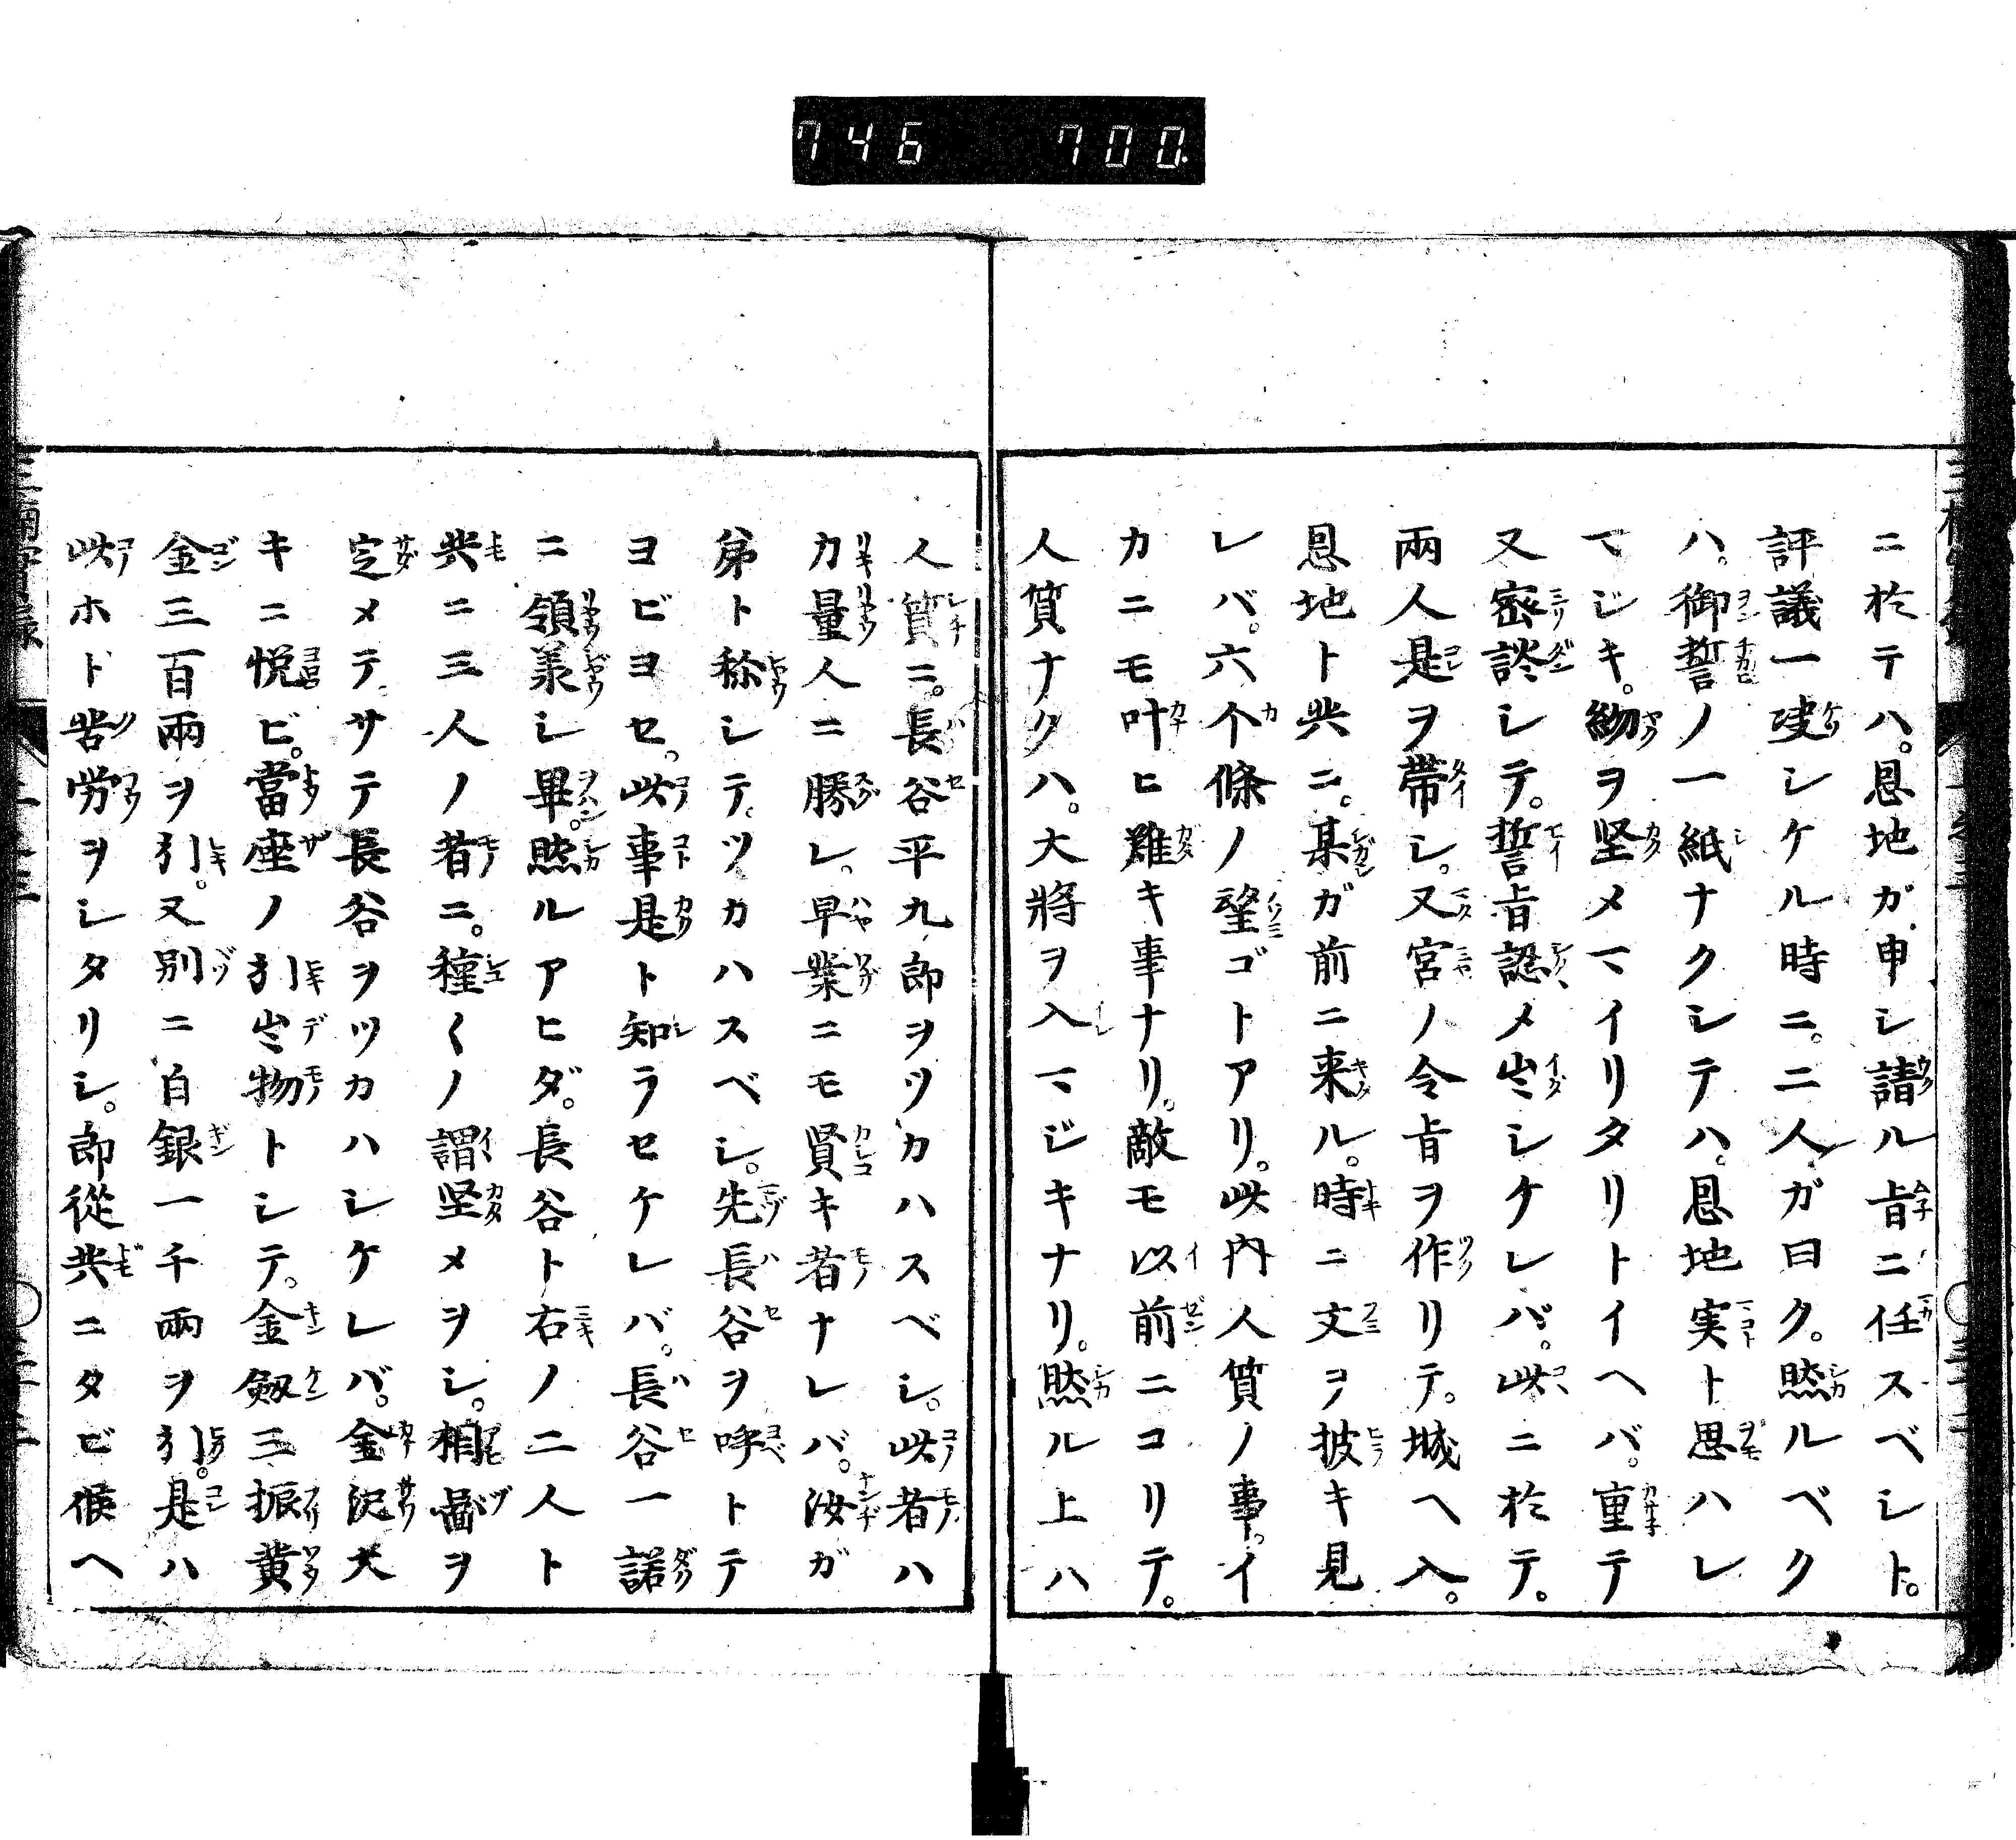 746 700.
ニ於テハ。恩地ガ申シ請ル旨ニ任スベシト。
評議一決シケル時ニ。二人ガ曰ク。然ルベク
ハ。御誓ノ一紙ナクシテハ。恩地実ト思ハレ
マジキ。物ヲ堅メマイリタリトイヘバ。重テ
又密談シテ。誓旨認メ出シケレバ。此ニ於テ。
兩人是ヲ帶シ。又宮ノ令旨ヲ作リテ。城ヘ入。
恩地ト共ニ。某ガ前ニ来ル。時ニ文ヲ披キ見
レバ。六个條ノ望ゴトアリ。此内人質ノ事。イ
カニモ叶ヒ難キ事ナリ。敵モ以前ニコリテ。
人質ナクハ。大將ヲ入マジキナリ。然ル上ハ
人質ニ。長谷平九郎ヲツカハスベシ。此者ハ
力量人ニ勝レ。早業ニモ賢キ者ナレバ。汝ガ
弟ト称シテ。ツカハスベシ。先長谷ヲ呼トテ
ヨビヨセ。此事是ト知ラセケレバ。長谷一諾
ニ領掌シ畢。然ルアヒダ。長谷ト右ノ二人ト
共ニ三人ノ者ニ。種〱ノ謂堅メヲシ。相圖ヲ
定メテ。サテ長谷ヲツカハシケレバ。金沢大
キニ悦ビ。當座ノ引出物トシテ。金剱三振黄
金三百兩ヲ引。又別ニ白銀一千兩ヲ引。是ハ
此ホド苦労ヲシタリシ。郎從共ニタビ候ヘ